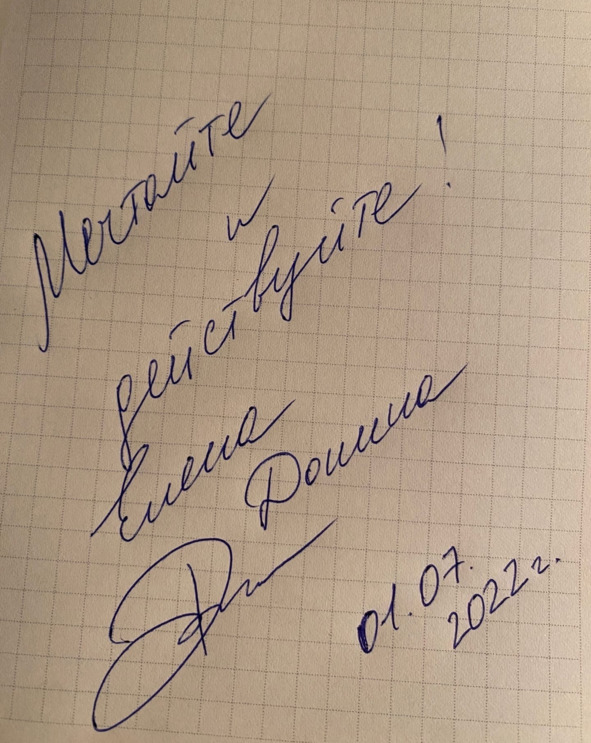 Мечтайте
и
действуйте!
Елена
Донина
01.07.
2022г.